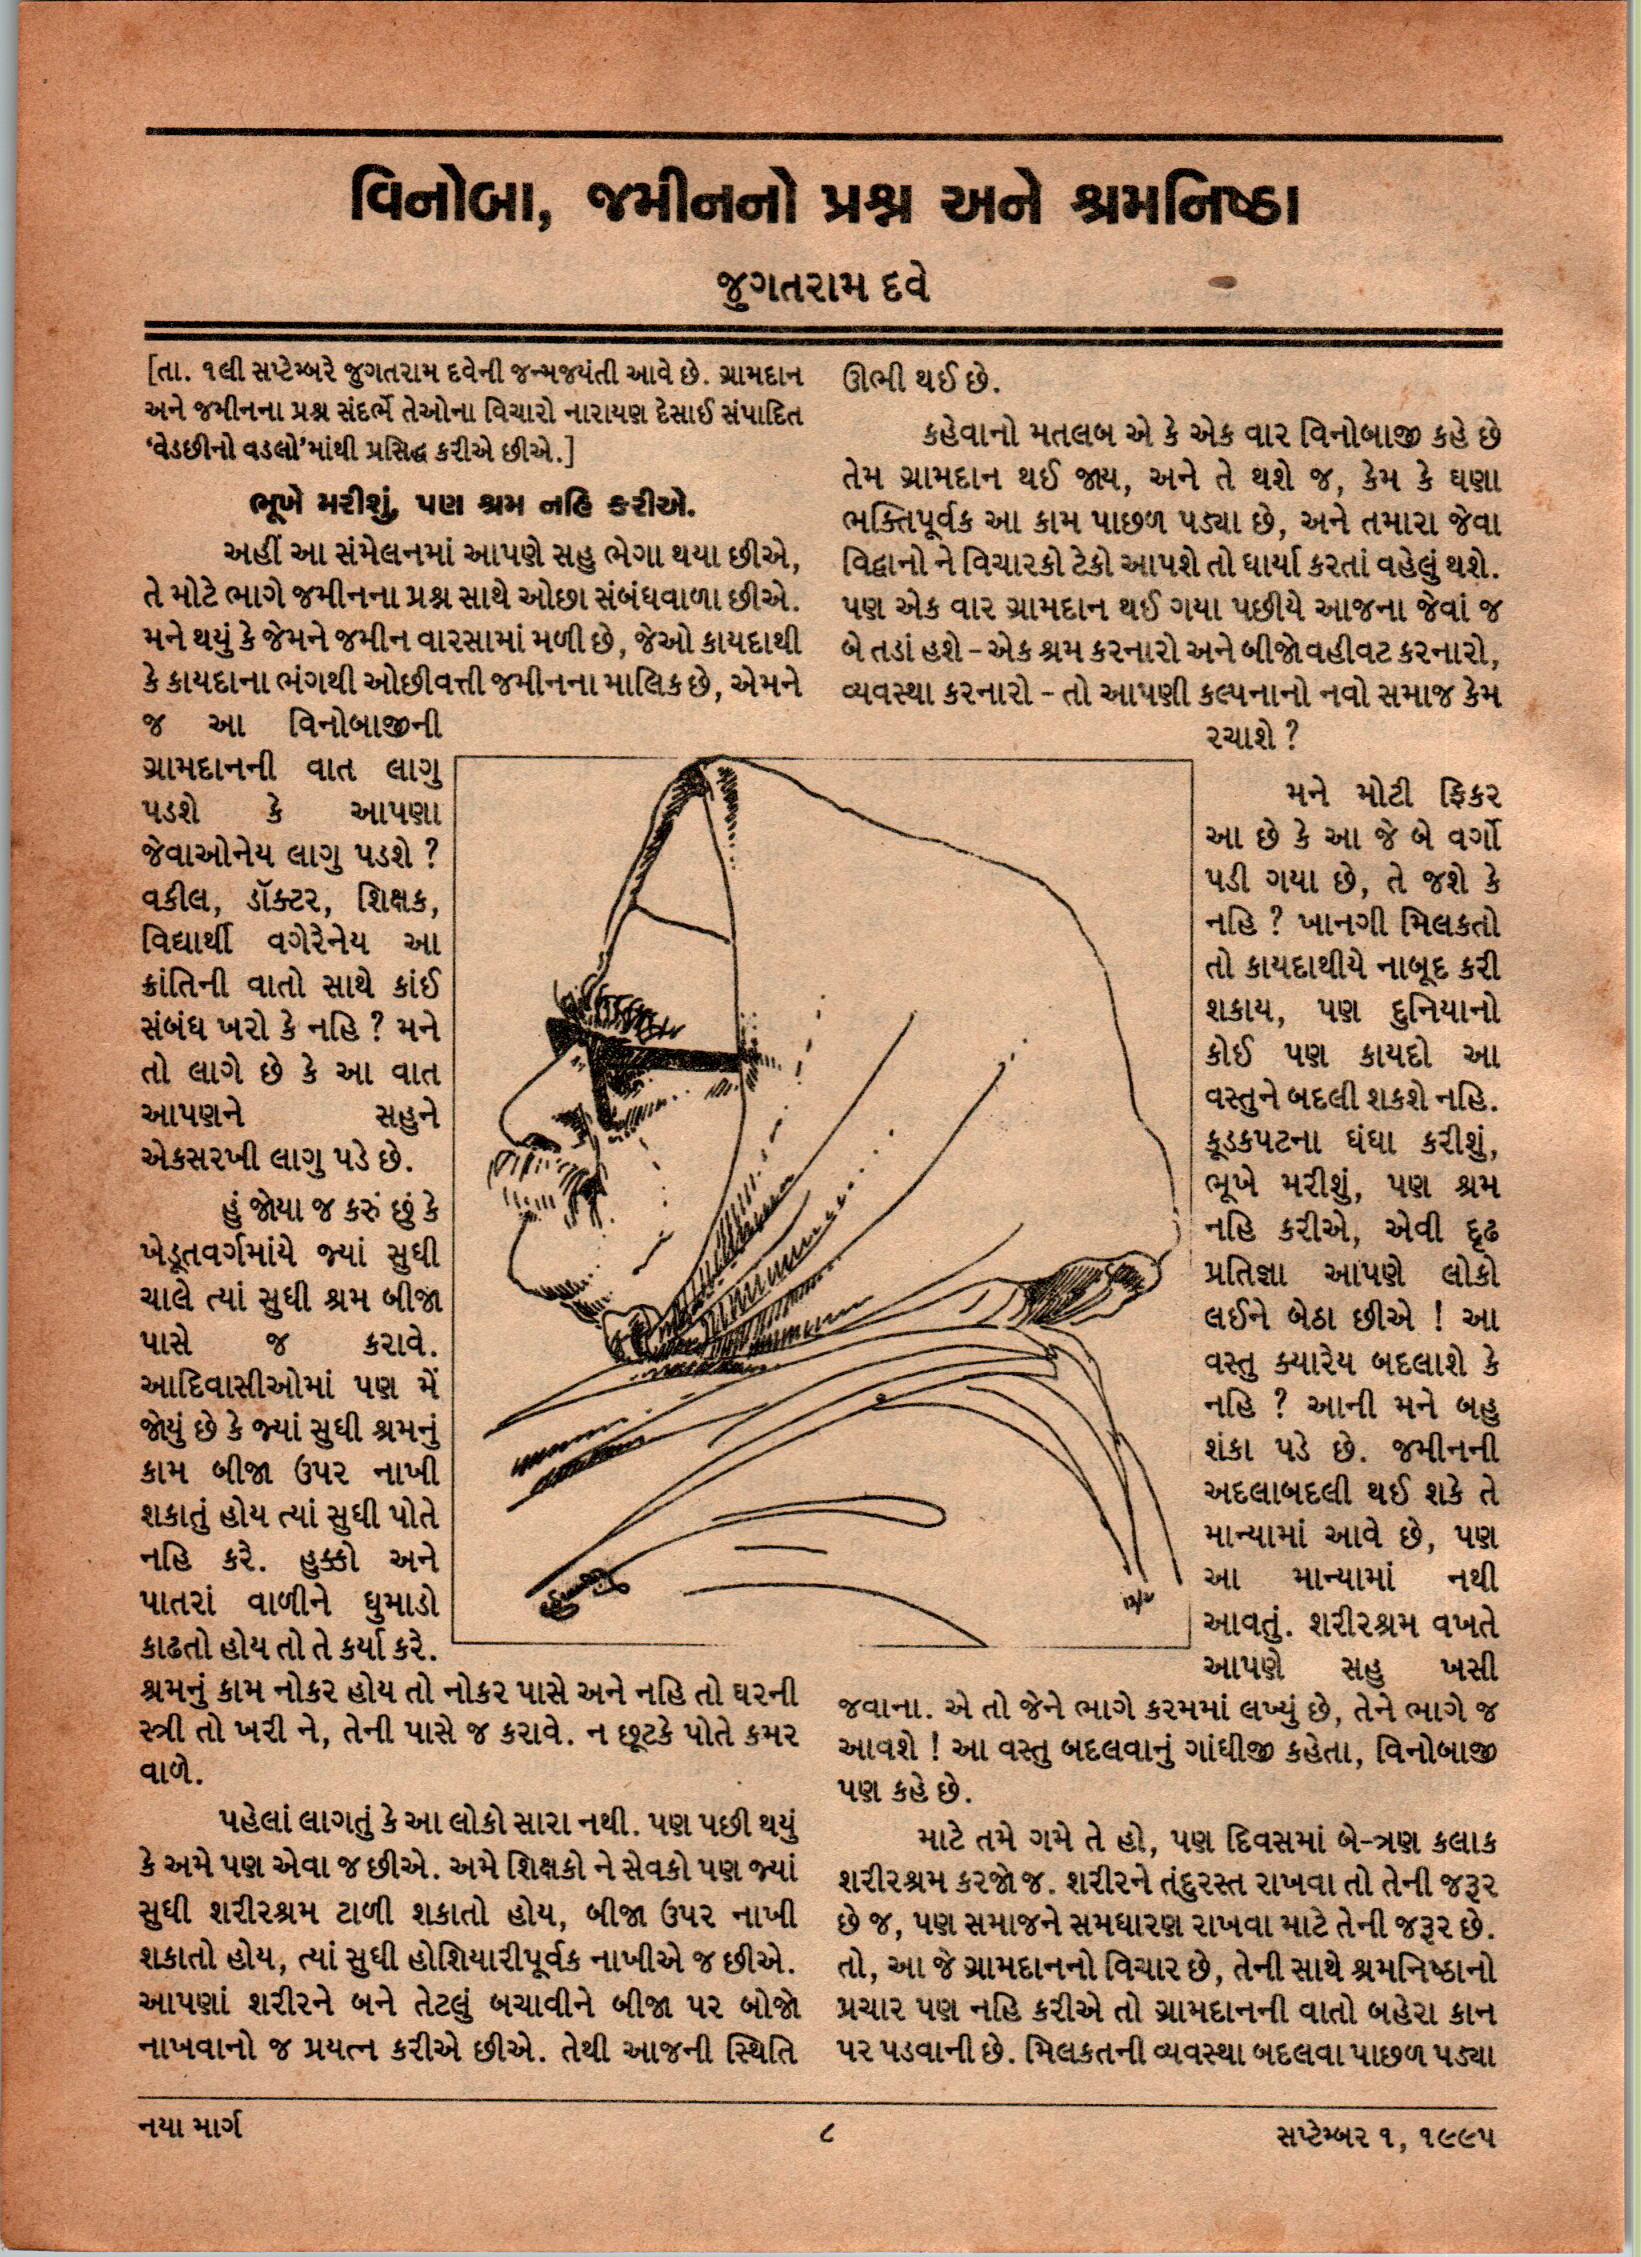 વિનોબા, જમીનનો પ્રશ્ન અને શ્રમનિષ્ઠા
જુગતરામ દવે
[તા. ૧લી સપ્ટેમ્બરે જુગતરામ દવેની જન્મજયંતી આવે છે. ગ્રામદાન
અને જમીનના પ્રશ્ન સંદર્ભે તેઓના વિચારો નારાયણ દેસાઈ સંપાદિત
‘વેડછીનો વડલો’માંથી પ્રસિદ્ધ કરીએ છીએ.]
ભૂખે મરીશું, પણ શ્રમ નહિ કરીએ.
અહીં આ સંમેલનમાં આપણે સહુ ભેગા થયા છીએ,
તે મોટે ભાગે જમીનના પ્રશ્ન સાથે ઓછા સંબંધવાળા છીએ.
મને થયું કે જેમને જમીન વારસામાં મળી છે, જેઓ કાયદાથી
કે કાયદાના ભંગથી ઓછીવત્તી જમીનના માલિક છે, એમને
જ આ વિનોબાજીની
ગ્રામદાનની વાત લાગુ
પડશે કે આપણા
જેવાઓનેય લાગુ પડશે ?
વકીલ, ડૉક્ટર, શિક્ષક,
વિદ્યાર્થી વગેરેનેય આ
ક્રાંતિની વાતો સાથે કાંઈ
સંબંધ ખરો કે નહિ ? મને
તો લાગે છે કે આ વાત
આપણને સહુને
એકસરખી લાગુ પડે છે.
હું જોયા જ કરું છું કે
ખેડૂતવર્ગમાંયે જ્યાં સુધી
ચાલે ત્યાં સુધી શ્રમ બીજા
પાસે જ કરાવે.
આદિવાસીઓમાં પણ મેં
જોયું છે કે જ્યાં સુધી શ્રમનું
કામ બીજા ઉપર નાખી
શકાતું હોય ત્યાં સુધી પોતે
નહિ કરે. હુક્કો અને
પાતરાં વાળીને ધુમાડો
કાઢતો હોય તો તે કર્યા કરે.
શ્રમનું કામ નોકર હોય તો નોકર પાસે અને નહિ તો ઘરની
સ્ત્રી તો ખરી ને, તેની પાસે જ કરાવે. ન છૂટકે પોતે કમર
વાળે.
પહેલાં લાગતું કે આ લોકો સારા નથી. પણ પછી થયું
કે અમે પણ એવા જ છીએ. અમે શિક્ષકો ને સેવકો પણ જ્યાં
સુધી શરીરશ્રમ ટાળી શકાતો હોય, બીજા ઉપર નાખી
શકાતો હોય, ત્યાં સુધી હોશિયારીપૂર્વક નાખીએ જ છીએ.
આપણાં શરીરને બને તેટલું બચાવીને બીજા પર બોજો
નાખવાનો જ પ્રયત્ન કરીએ છીએ. તેથી આજની સ્થિતિ
ઊભી થઈ છે.
કહેવાનો મતલબ એ કે એક વાર વિનોબાજી કહે છે
તેમ ગ્રામદાન થઈ જાય, અને તે થશે જ, કેમ કે ઘણા
ભક્તિપૂર્વક આ કામ પાછળ પડ્યા છે, અને તમારા જેવા
વિદ્વાનો ને વિચારકો ટેકો આપશે તો ધાર્યા કરતાં વહેલું થશે.
પણ એક વાર ગ્રામદાન થઈ ગયા પછીયે આજના જેવાં જ
બે તડાં હશે – એક શ્રમ કરનારો અને બીજો વહીવટ કરનારો,
વ્યવસ્થા કરનારો – તો આપણી કલ્પનાનો નવો સમાજ કેમ
રચાશે ?
મને મોટી ફિકર
આ છે કે આ જે બે વર્ગો
પડી ગયા છે, તે જશે કે
નહિ ? ખાનગી મિલકતો
તો કાયદાથીયે નાબૂદ કરી
શકાય, પણ દુનિયાનો
કોઈ પણ કાયદો આ
વસ્તુને બદલી શકશે નહિ.
કૂડકપટના ધંધા કરીશું,
ભૂખે મરીશું, પણ શ્રમ
નહિ કરીએ, એવી દૃઢ
પ્રતિજ્ઞા આપણે લોકો
લઈને બેઠા છીએ ! આ
વસ્તુ ક્યારેય બદલાશે કે
નહિ ? આની મને બહુ
શંકા પડે છે. જમીનની
અદલાબદલી થઈ શકે તે
માન્યામાં આવે છે, પણ
આ માન્યામાં નથી
આવતું. શરીરશ્રમ વખતે
આપણે સહુ ખસી
જવાના. એ તો જેને ભાગે કરમમાં લખ્યું છે, તેને ભાગે જ
આવશે ! આ વસ્તુ બદલવાનું ગાંધીજી કહેતા, વિનોબાજી
પણ કહે છે.
માટે તમે ગમે તે હો, પણ દિવસમાં બે-ત્રણ કલાક
શરીરશ્રમ કરજો જ. શરીરને તંદુરસ્ત રાખવા તો તેની જરૂર
છે જ, પણ સમાજને સમધારણ રાખવા માટે તેની જરૂર છે.
તો, આ જે ગ્રામદાનનો વિચાર છે, તેની સાથે શ્રમનિષ્ઠાનો
પ્રચાર પણ નહિ કરીએ તો ગ્રામદાનની વાતો બહેરા કાન
પર પડવાની છે. મિલકતની વ્યવસ્થા બદલવા પાછળ પડ્યા
નયા માર્ગ
૮
સપ્ટેમ્બર ૧, ૧૯૯૫